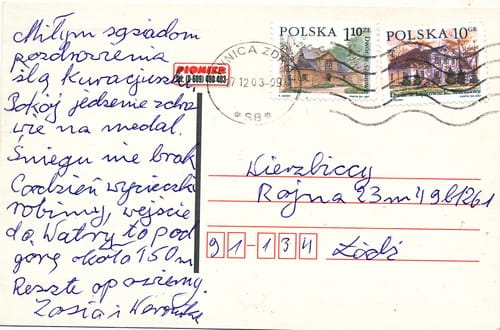 Miłym sąsiadom
pozdrowienia
ślą Kuracjusze
Pokój jedzenie zdro
wie na medal.
Śniegu nie brak
Codzień wycieczki
robimy, wejście
do Watry to pod
górę około 150 m
Resztę opowiemy.
Zosia i
PIONIER
tel. (0-609) 400 403
NICA ZDR
7 12 03 - 29
*SB*
POLSKA 1,10 ZŁ
POLSKA 10 GR
Wierzbiccy
Rojna 23 m 49 bl 261
91-134 Łódź